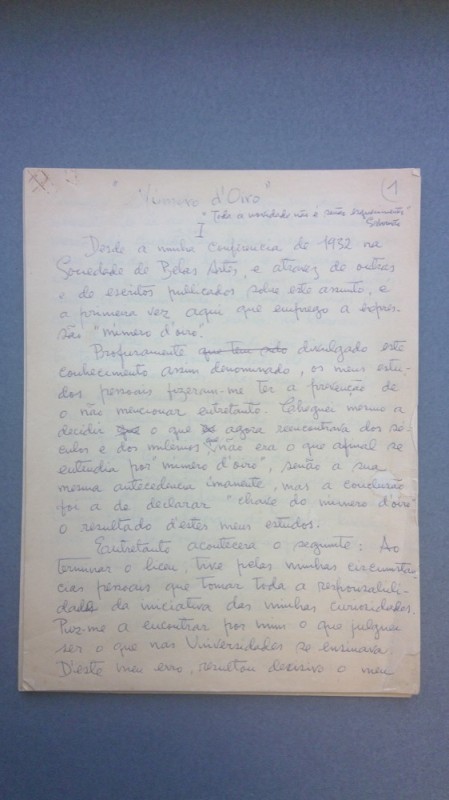 "Número d'Oiro" (1
"Toda a novidade não é senão esquecimento"
I
Desde a minha conferencia de 1932 na
Sociedade de Belas Artes, e atravez de outras
e de escritos publicados sobre este assunto, é
a primeira vez aqui que emprego a expres-
são "número d'oiro".
Profusamente que tem sido divulgado este
conhecimento assim denominado, os meus estu-
dos pessoais fizeram-me ter a prevenção de
o não mencionar entretanto. Cheguei mesmo a
decidir que o que agora reencontrava dos sé-
culos e dos milénios não era o que afinal se
entendia por número d'oiro", senão a sua
mesma antecedencia imanente, mas a conclusão
foi a de declarar "chave do número d'oiro"
o resultado d'estes meus estudos.
Entretanto acontecera o seguinte: Ao
terminar o liceu, tive pelas minhas circunstan-
cias pessoais que tomar toda a responsabili-
dade da iniciativa das minhas curiosidades.
Puz-me a encontrar por mim o que julguei
ser o que nas Universidades se ensinava.
D'este meu erro, resultou decisivo o meu